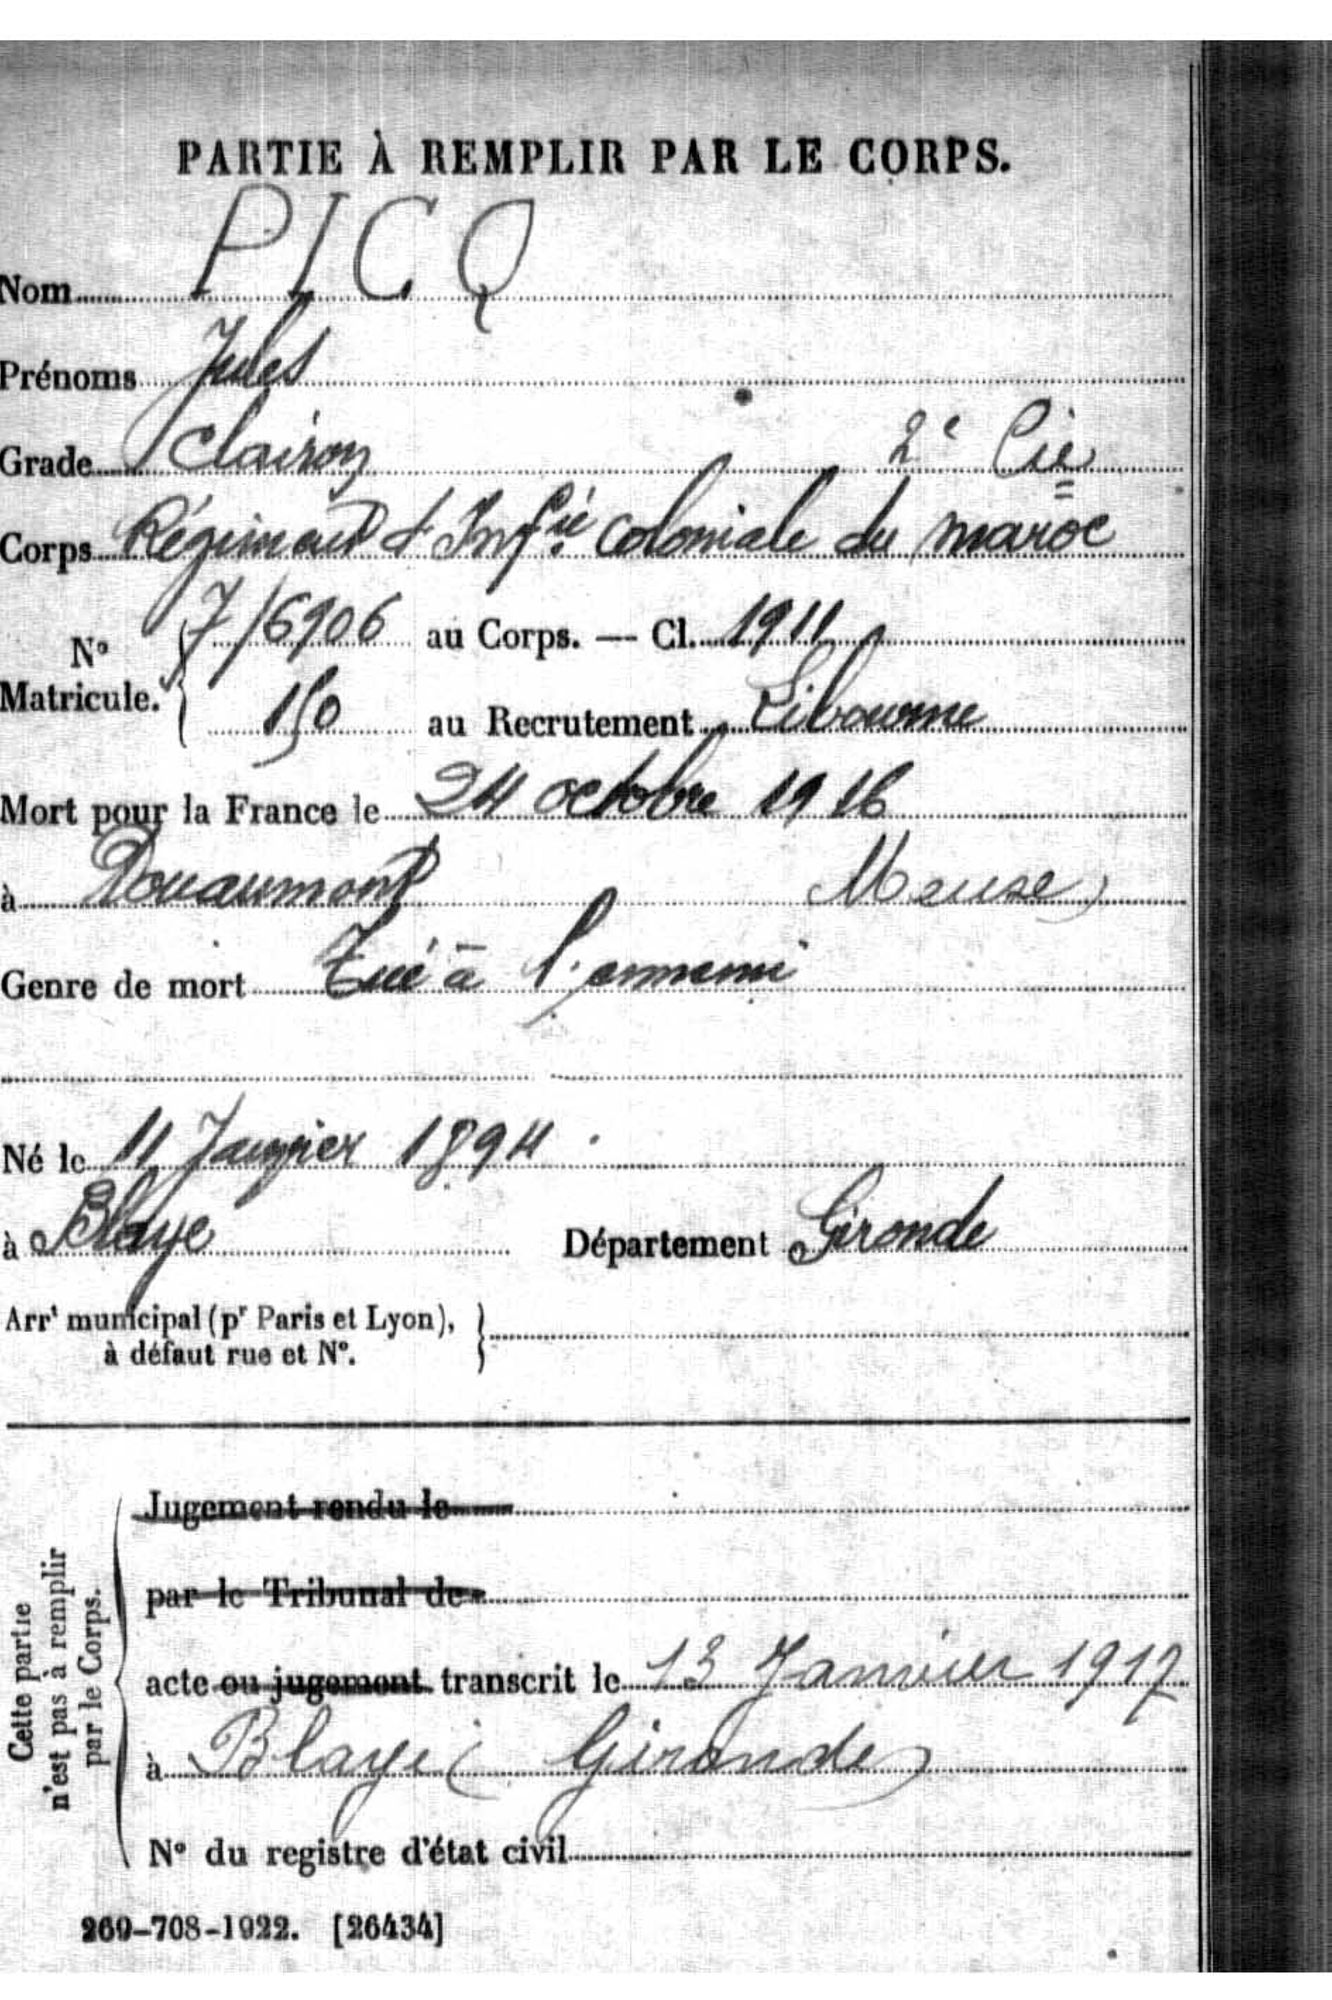 PARTIE À REMPLIR PAR LE CORPS.
Nom PICQ
Prénoms Jules
Grade Clairon 2e Cie
Corps Régiment d'Infie coloniale du maroc
7/6906 au Corps. — Cl. 1911
N° Matricule.
150 au Recrutement Libourne
Mort pour la France le 24 octobre 1916
à Douaumont Meuse)
Genre de mort Tué à l'ennemi
Né le 11 Janvier 1894
à Blaye Département Gironde
Arrt municipal (pr Paris et Lyon),
à défaut rue et N°.
Cette partie
n'est pas à remplir
par le Corps.
Jugement rendu le
par le Tribunal de
acte ou jugement transcrit le 13 Janvier 1917
à Blaye (Gironde)
N° du registre d'état civil
269-708-1922. [26434]